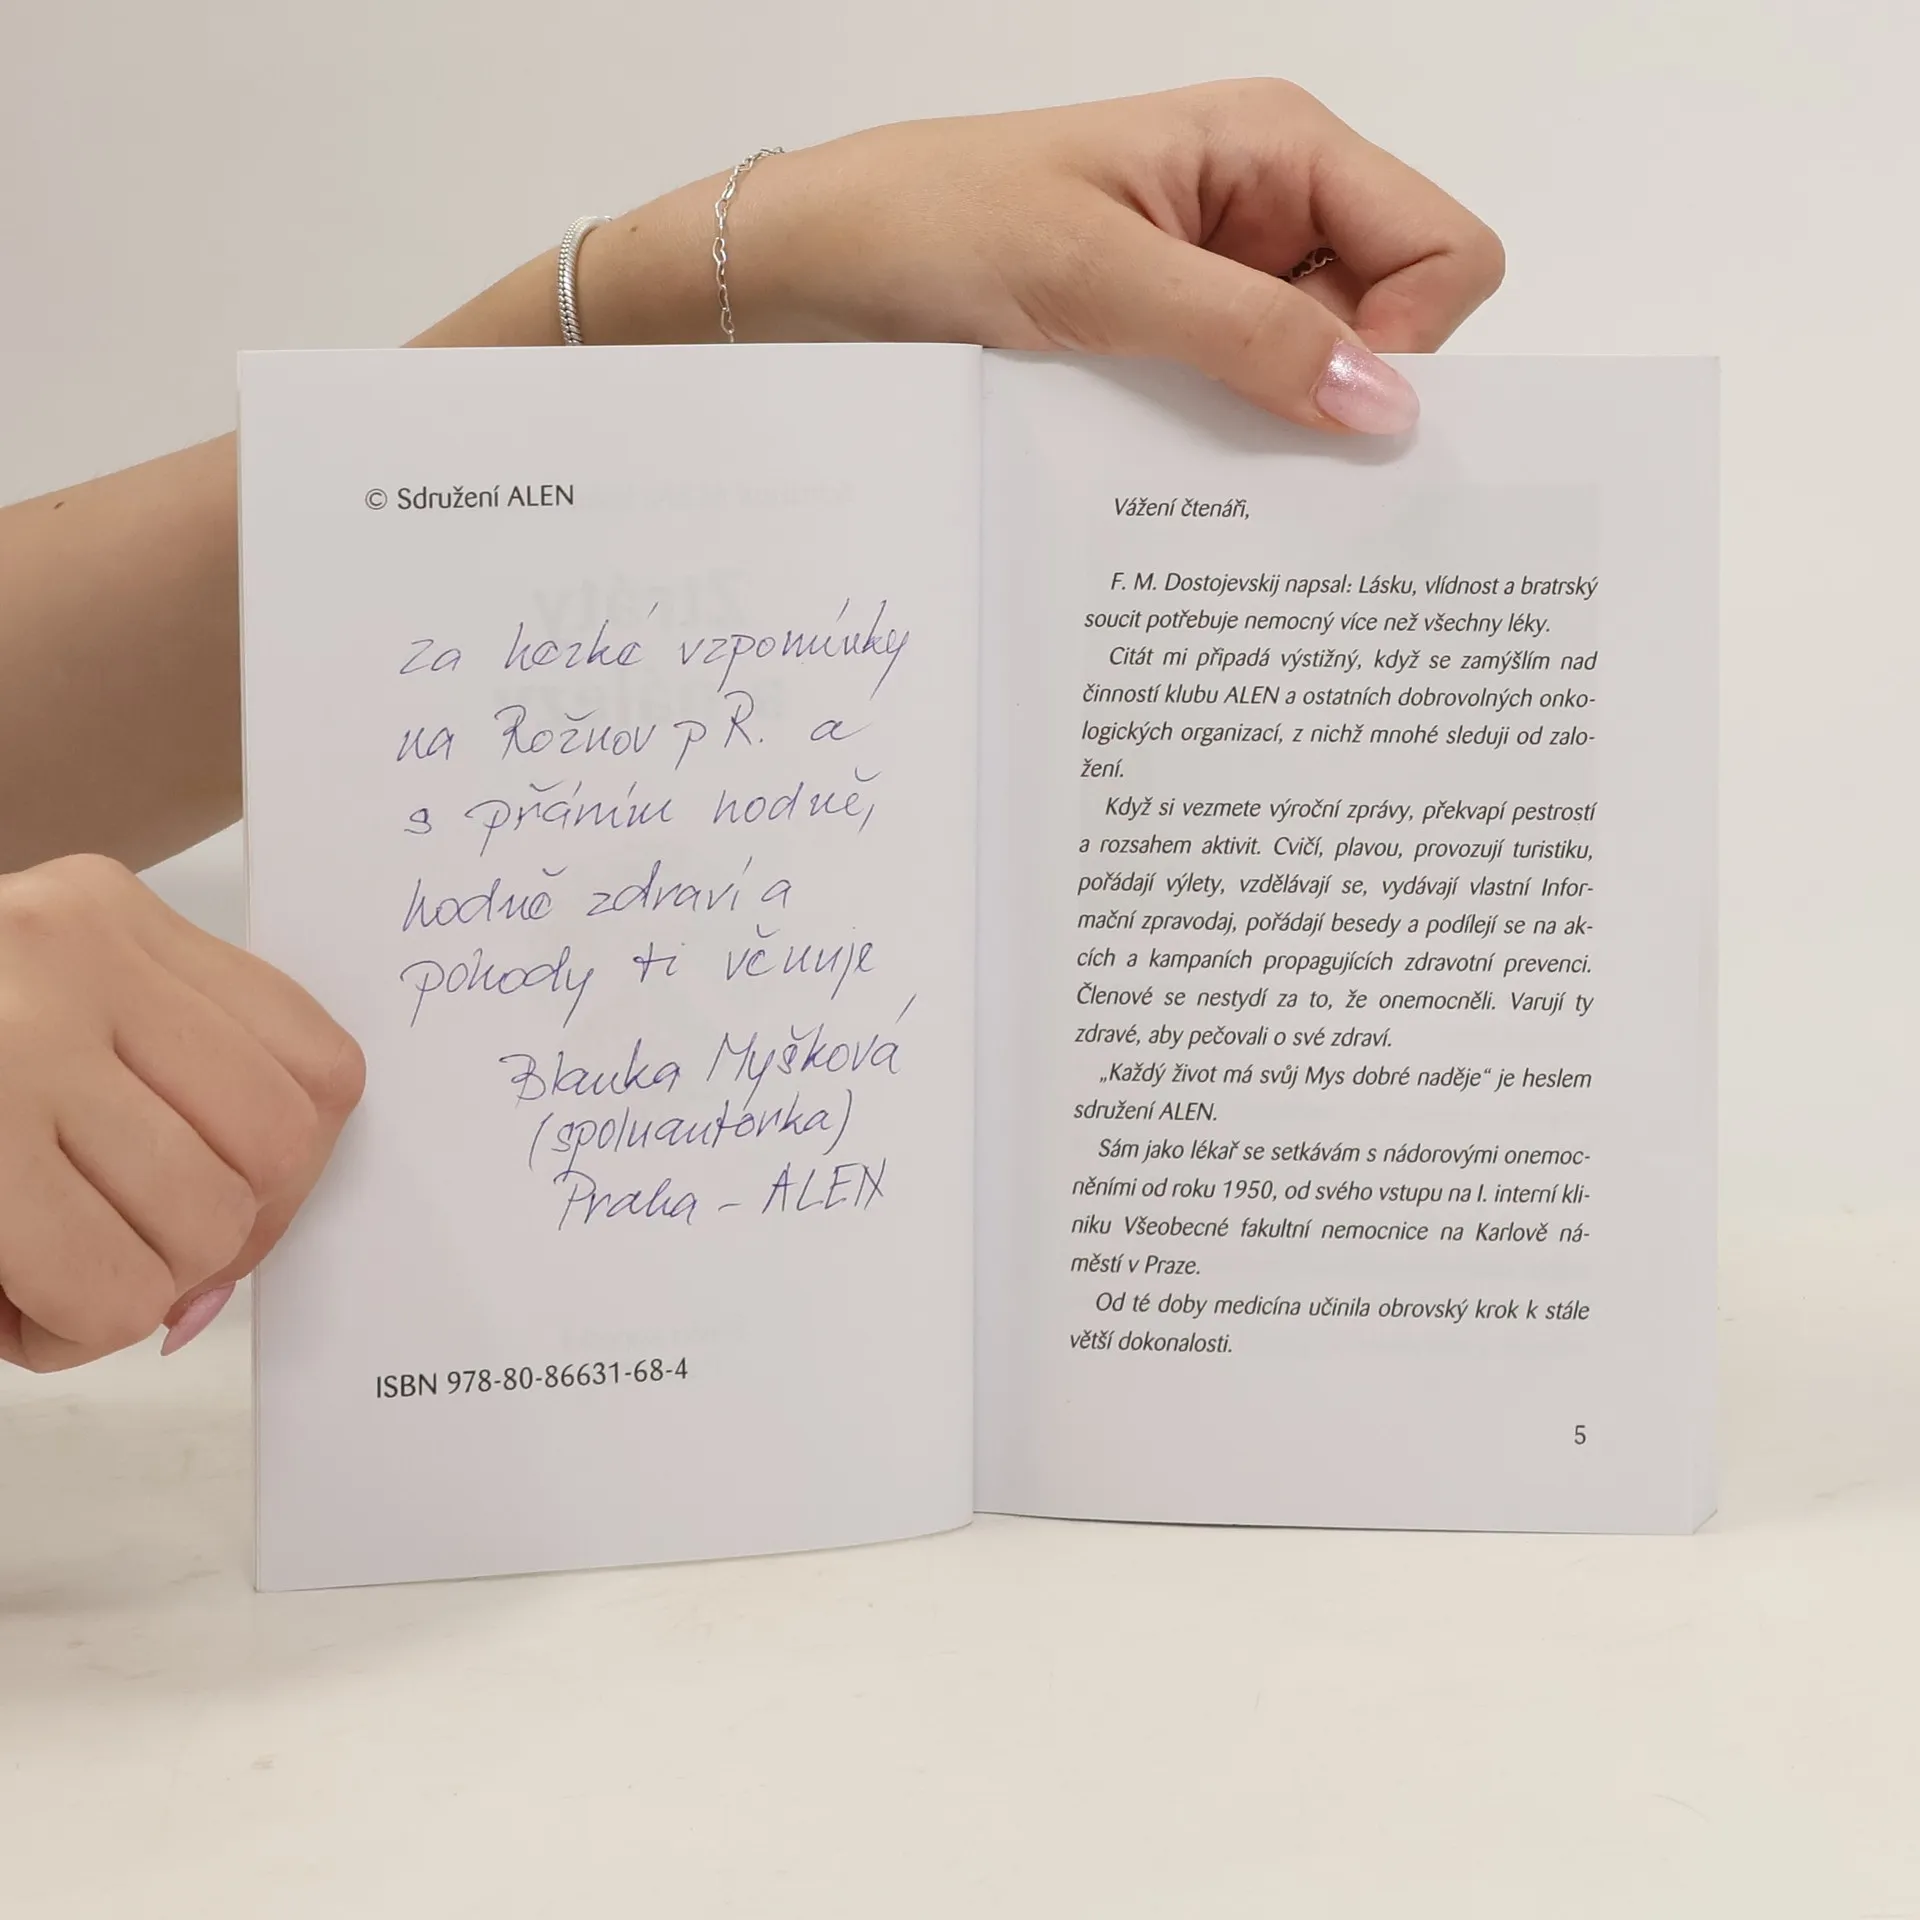 © Sdružení ALEN
za hezké vzpomínky
na Rožnov p R. a
s přáním hodně,
hodně zdraví a
pohody ti věnuje
Blanka Myšková
(spoluautorka)
Praha - ALEN
ISBN 978-80-86631-68-4
Vážení čtenáři,
F. M. Dostojevskij napsal: Lásku, vlídnost a bratrský
soucit potřebuje nemocný více než všechny léky.
Citát mi připadá výstižný, když se zamýšlím nad
činností klubu ALEN a ostatních dobrovolných onko-
logických organizací, z nichž mnohé sleduji od zalo-
žení.
Když si vezmete výroční zprávy, překvapí pestrostí
a rozsahem aktivit. Cvičí, plavou, provozují turistiku,
pořádají výlety, vzdělávají se, vydávají vlastní Infor-
mační zpravodaj, pořádají besedy a podílejí se na ak-
cích a kampaních propagujících zdravotní prevenci.
Členové se nestydí za to, že onemocněli. Varují ty
zdravé, aby pečovali o své zdraví.
„Každý život má svůj Mys dobré naděje“ je heslem
sdružení ALEN.
Sám jako lékař se setkávám s nádorovými onemoc-
něními od roku 1950, od svého vstupu na I. interní kli-
niku Všeobecné fakultní nemocnice na Karlově ná-
městí v Praze.
Od té doby medicína učinila obrovský krok k stále
větší dokonalosti.
5